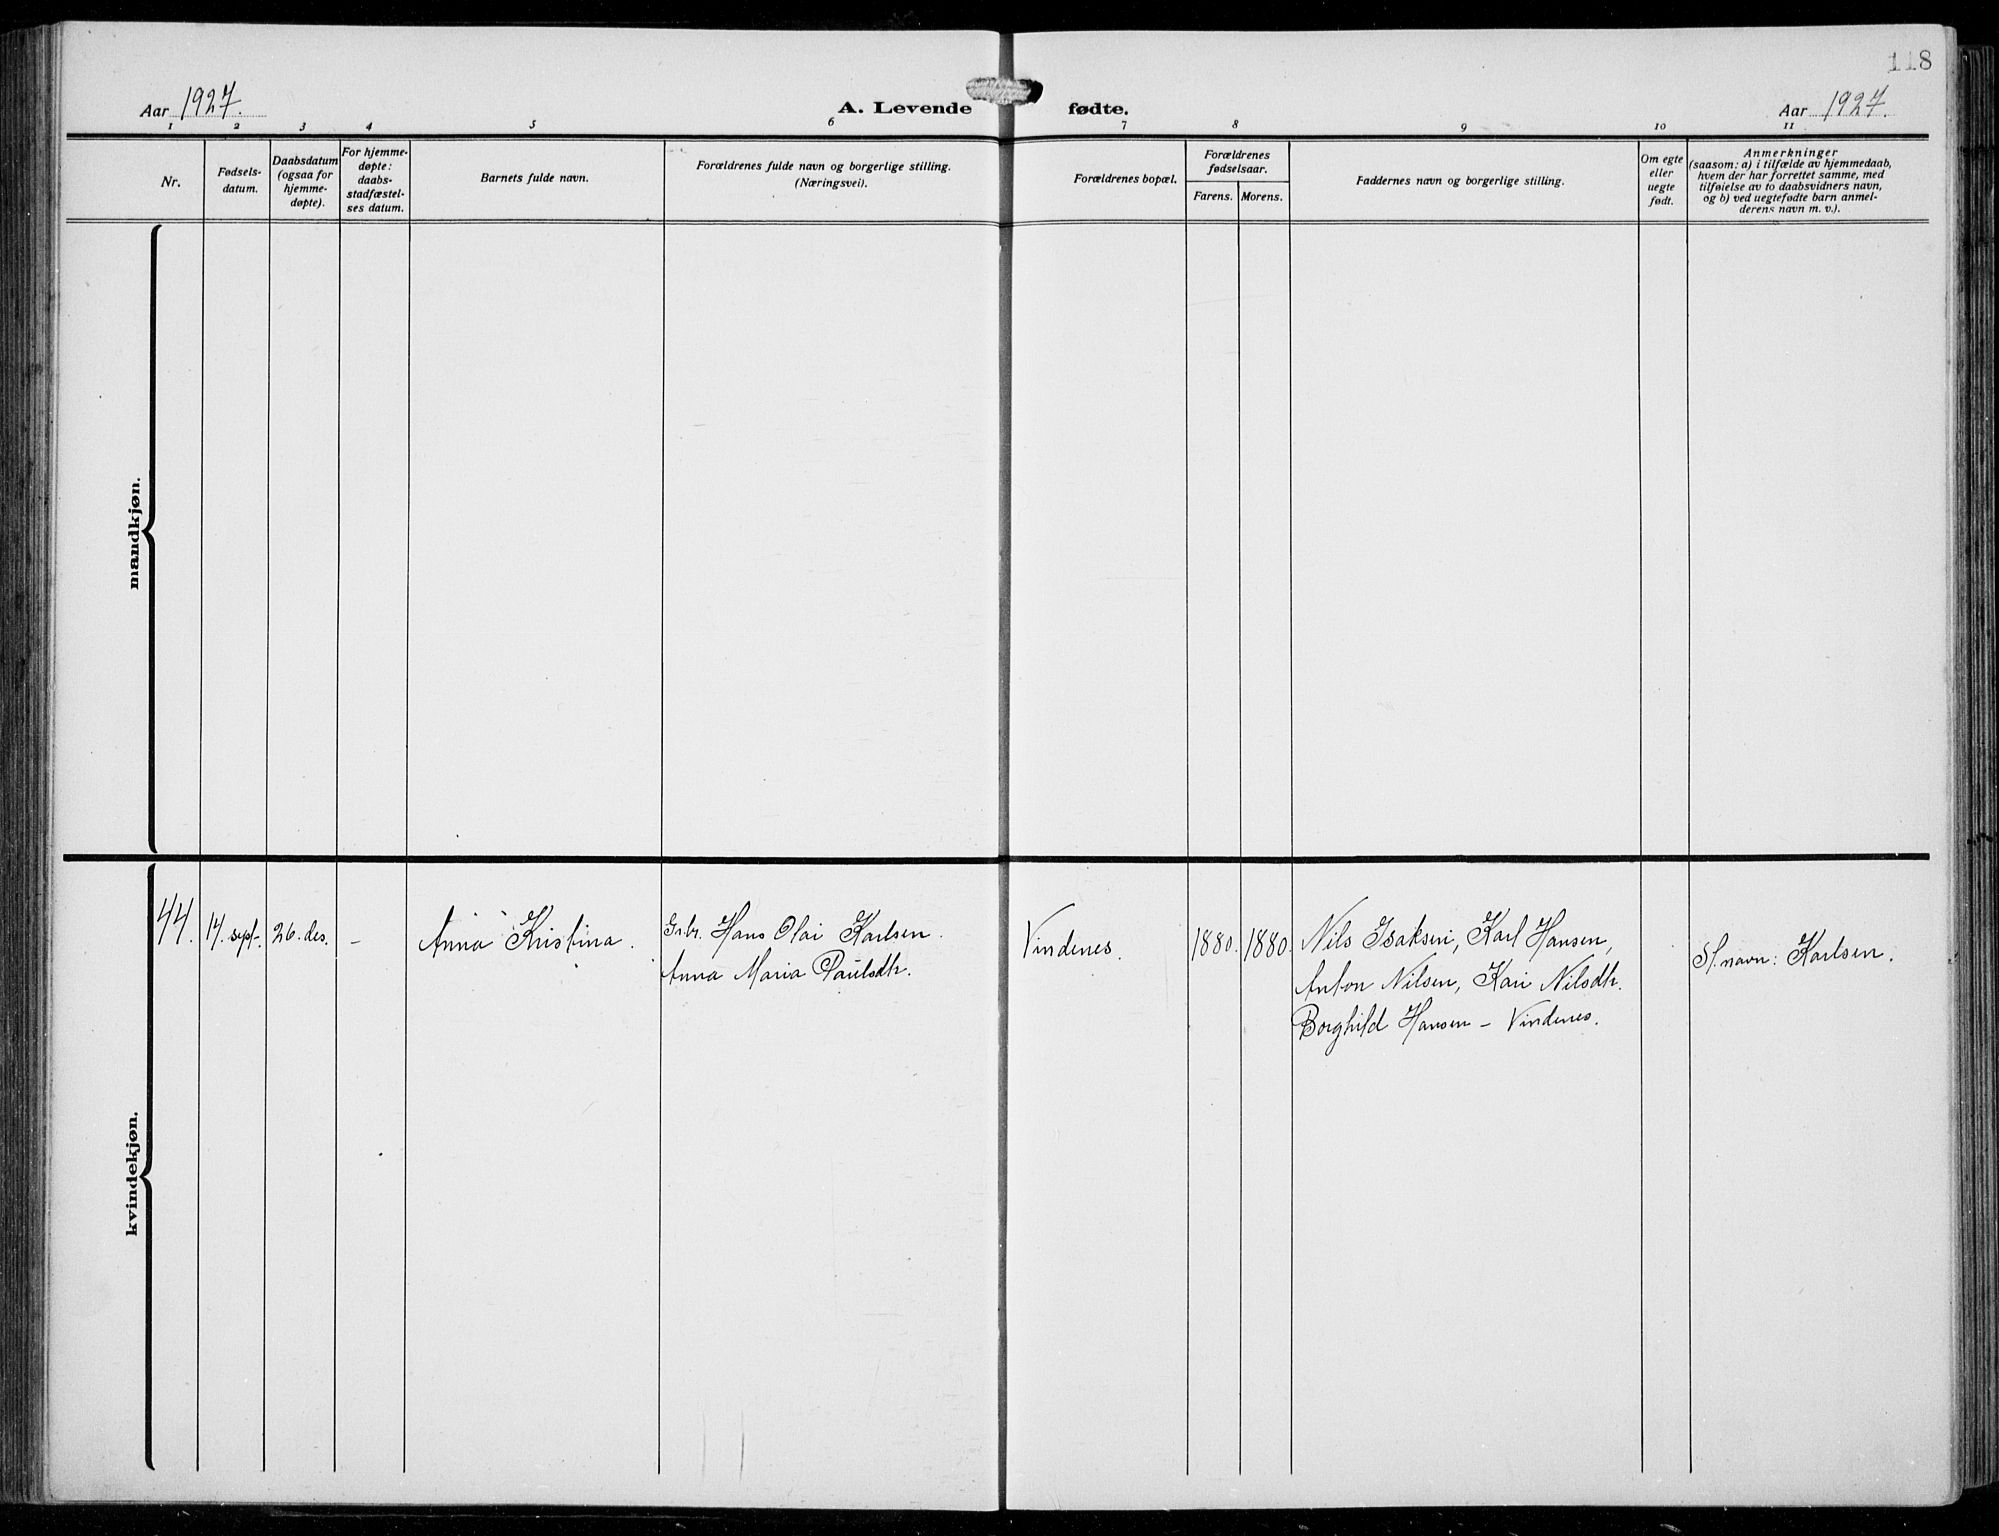 118
Aar 1927.
A. Levende fødte.
Aar 1927.
1 2 3 4 5 6 7 8 9 10 11
Nr.
Fødsels-
datum.
Daabsdatum
(ogsaa for
hjemme-
døpte).
For hjemme-
døpte:
daabs-
stadfæstel-
ses datum.
Barnets fulde navn.
Forældrenes fulde navn og borgerlige stilling.
(Næringsvei).
Forældrenes bopæl.
Forældrenes
fødselsaar.
Farens. Morens.
Faddernes navn og borgerlige stilling.
Om egte
eller
uegte
født.
Anmerkninger
(saasom: a) i tilfælde av hjemmedaab,
hvem der har forrettet samme, med
tilføielse av to daabsvidners navn,
og b) ved uegtefødte barn anmel-
derens navn m. v.).
mandkjøn.
kvindekjøn.
44.
17. sept.
26. des.
–
Anna Kristina.
Gr.br. Hans Olai Karlsen.
Anna Maria Paulsdtr.
Vindenes.
1880.
1880.
Nils Isaksen, Karl Hansen,
Anton Nilsen, Kari Nilsdtr.
Borghild Hansen – Vindenes.
Sl.navn: Karlsen.